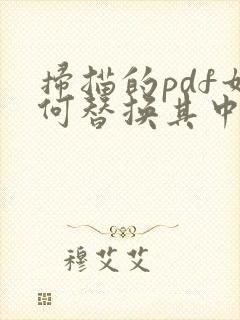 掃描的pdf如
何替換其中
穆艾艾